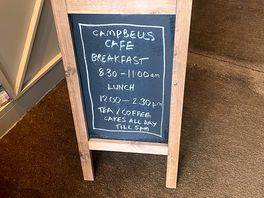 CAMPBELLS
CAFE
BREAKFAST
8.30 - 11:00am
LUNCH
12.00 - 2.30pm
TEA / COFFEE
CAKES ALL DAY
TILL 5pm